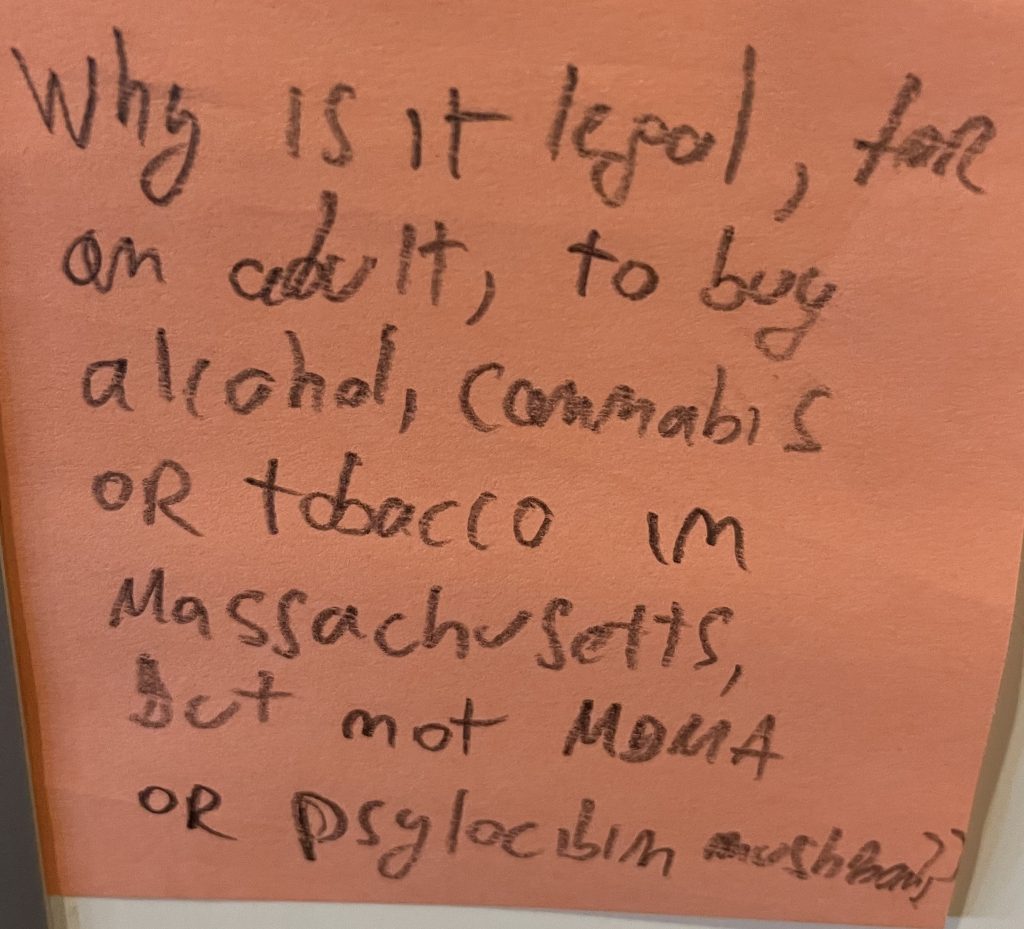 Why is it legal, for
an adult, to buy
alcohol, cannabis
OR tobacco in
Massachusetts,
but not MDMA
OR psylocibin mushroom??